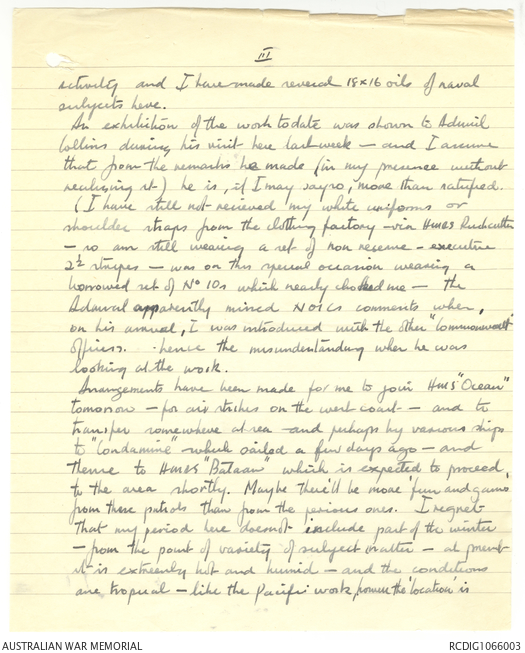 III
activity and I have made several 18x16 oils of naval
subjects here.
An exhibition of the work to date was shown to Admiral
Collins during his visit here last week – and I assume
that from the remarks he made (in my presence without
realizing it) he is, if I may say so, more than satisfied.
(I have still not received my white uniforms or
shoulder straps from the clothing factory – via HMAS Rushcutter
– so am still wearing a set of non reserve – executive
2½ stripes – was on this special occasion wearing a
borrowed set of No 10s which nearly choked me – the
Admiral apparently missed NOICs comments when,
on his arrival, I was introduced with the other "Commonwealth"
officers. hence the misunderstanding when he was
looking at the work.
Arrangements have been made for me to join HMS "Ocean"
tomorrow – for air strikes on the west coast – and to
transfer somewhere at sea – and perhaps by various ships
to "Condamine" – which sailed a few days ago – and
thence to HMAS "Bataan" which is expected to proceed,
to the area shortly. Maybe there'll be more 'fun and games'
from these patrols than from the previous ones. I regret
that my period here doesnot include part of the winter
– from the point of variety of subject matter – at present
it is extremely hot and humid – and the conditions
are tropical – like the Pacific work, however the 'location' is
AUSTRALIAN WAR MEMORIAL
RCDIG1066003